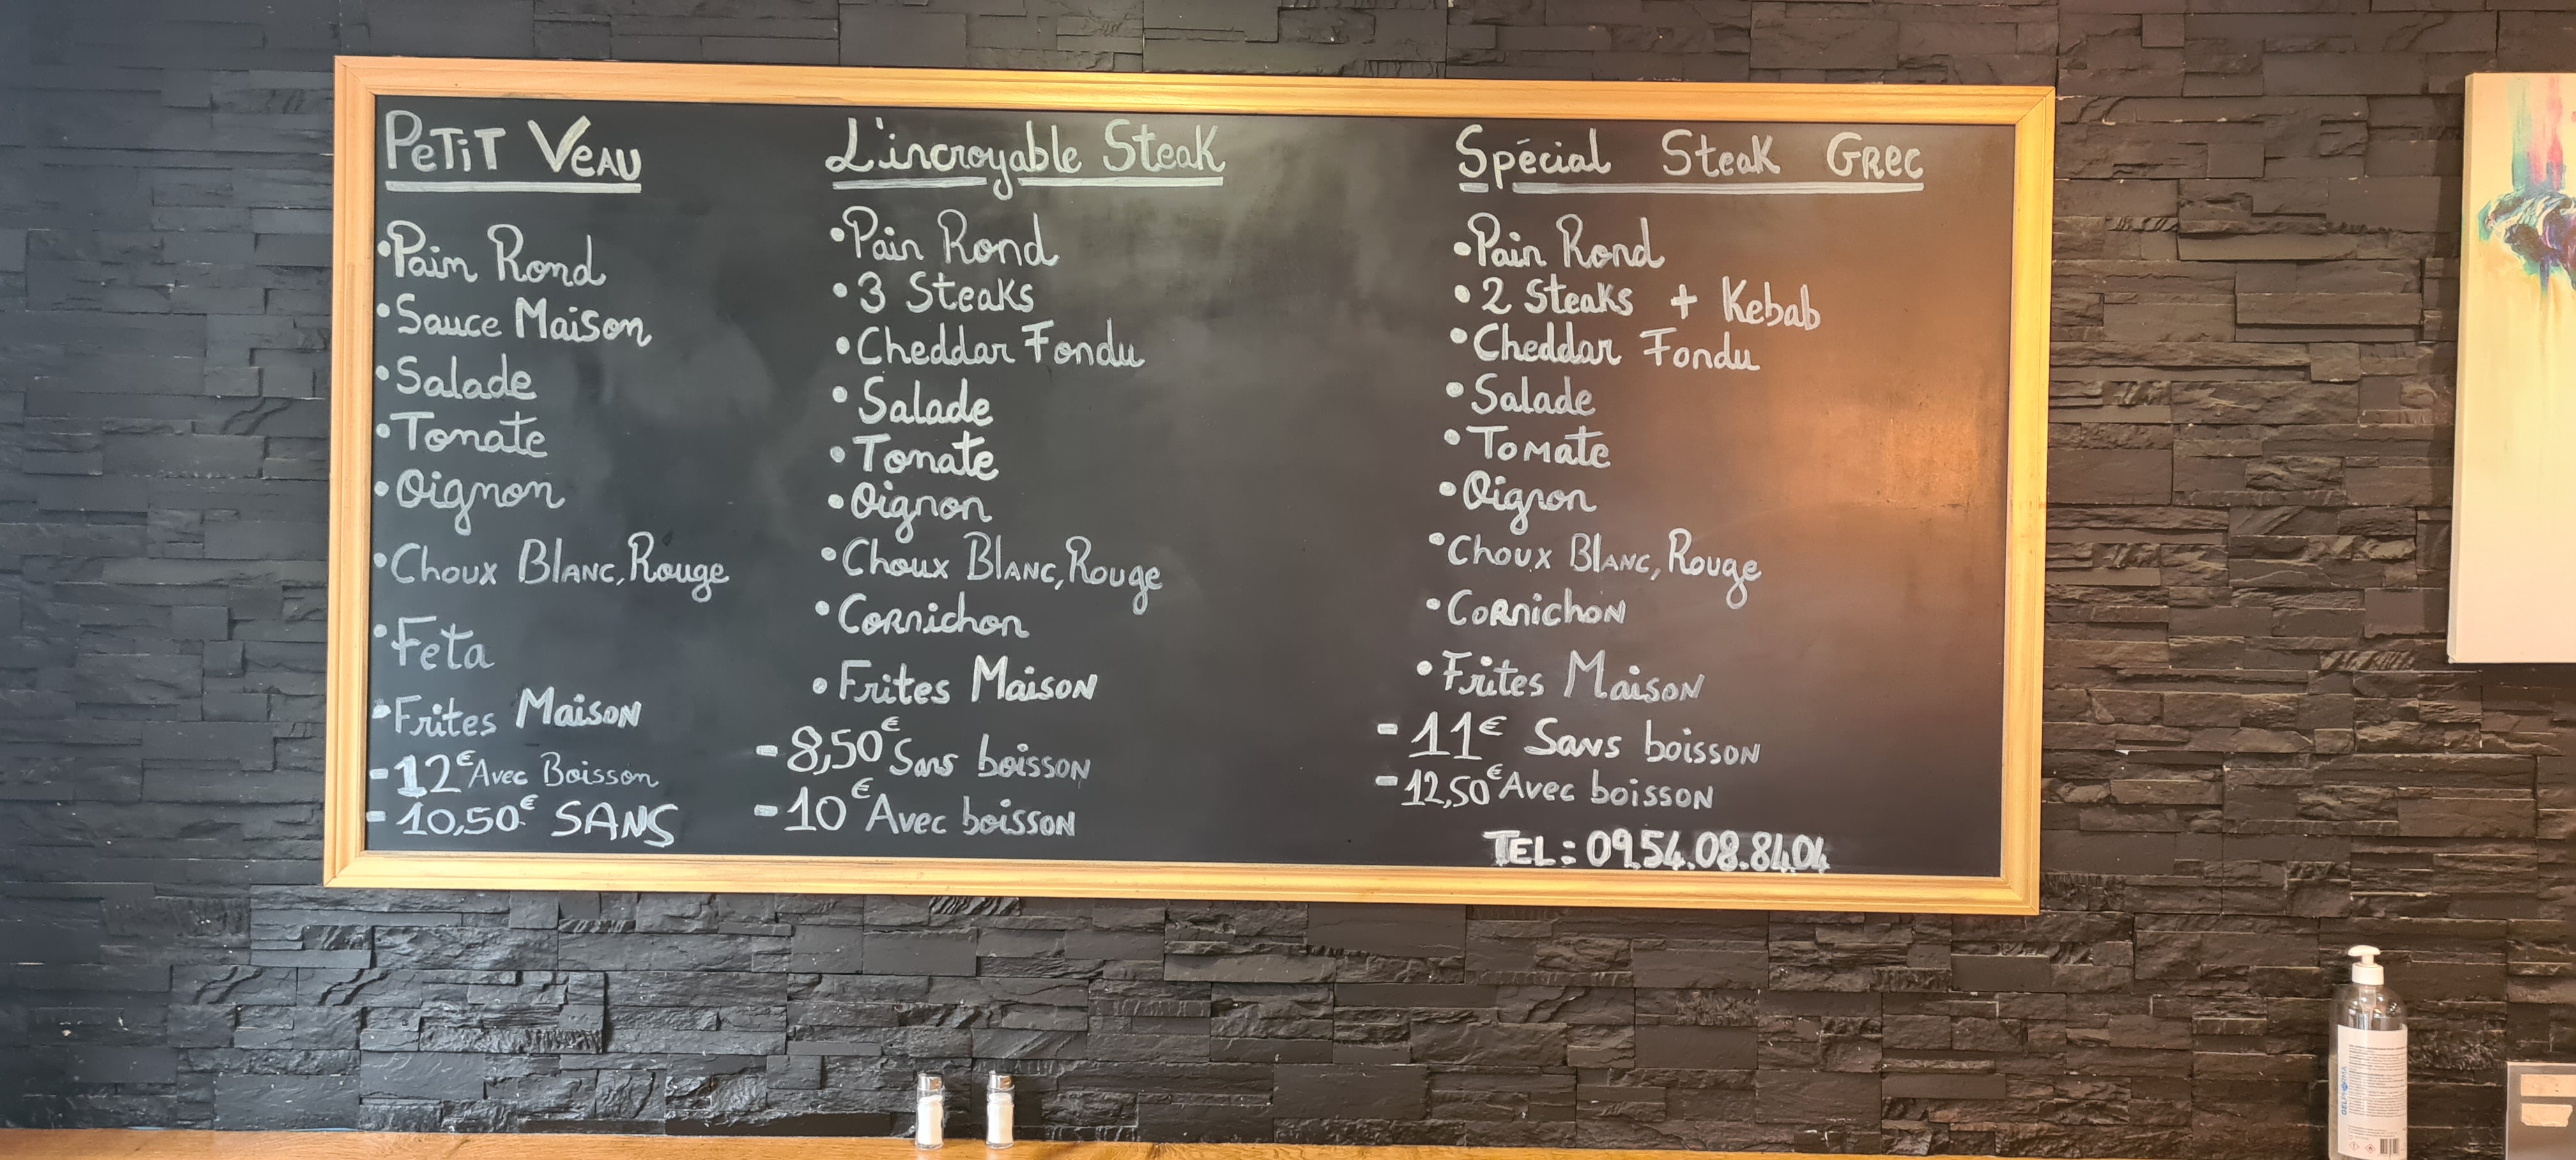 PETIT VEAU
• Pain Rond
• Sauce Maison
• Salade
• Tomate
• Oignon
• Choux BLANC, Rouge
• Feta
• Frites Maison
- 12€ Avec Boisson
- 10,50€ SANS
L'incroyable Steak
• Pain Rond
• 3 Steaks
• Cheddar Fondu
• Salade
• Tomate
• Oignon
• Choux BLANC, Rouge
• Cornichon
• Frites Maison
- 8,50€ Sans boisson
- 10€ Avec boisson
Spécial Steak GREC
• Pain Rond
• 2 Steaks + Kebab
• Cheddar Fondu
• Salade
• Tomate
• Oignon
• Choux BLANC, Rouge
• Cornichon
• Frites Maison
- 11€ Sans boisson
- 12,50€ Avec boisson
TEL: 09.54.08.84.04